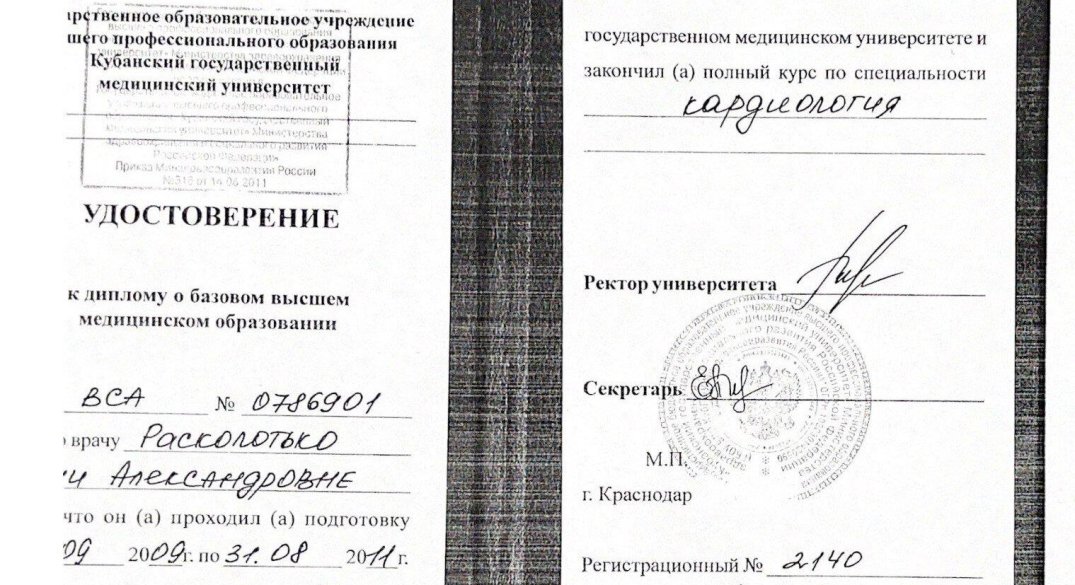 арственное образовательное учреждение
шего профессионального образования
Кубанский государственный
медицинский университет
Приказ Минздравсоцразвития России
от 14.06.2011
УДОСТОВЕРЕНИЕ
к диплому о базовом высшем
медицинском образовании
ВСА № 0786901
врачу Расколотько
Александровне
что он (а) проходил (а) подготовку
09 2009г. по 31.08 2011 г.
государственном медицинском университете и
закончил (а) полный курс по специальности
кардиология
Ректор университета
Секретарь
М.П.
г. Краснодар
Регистрационный № 2140